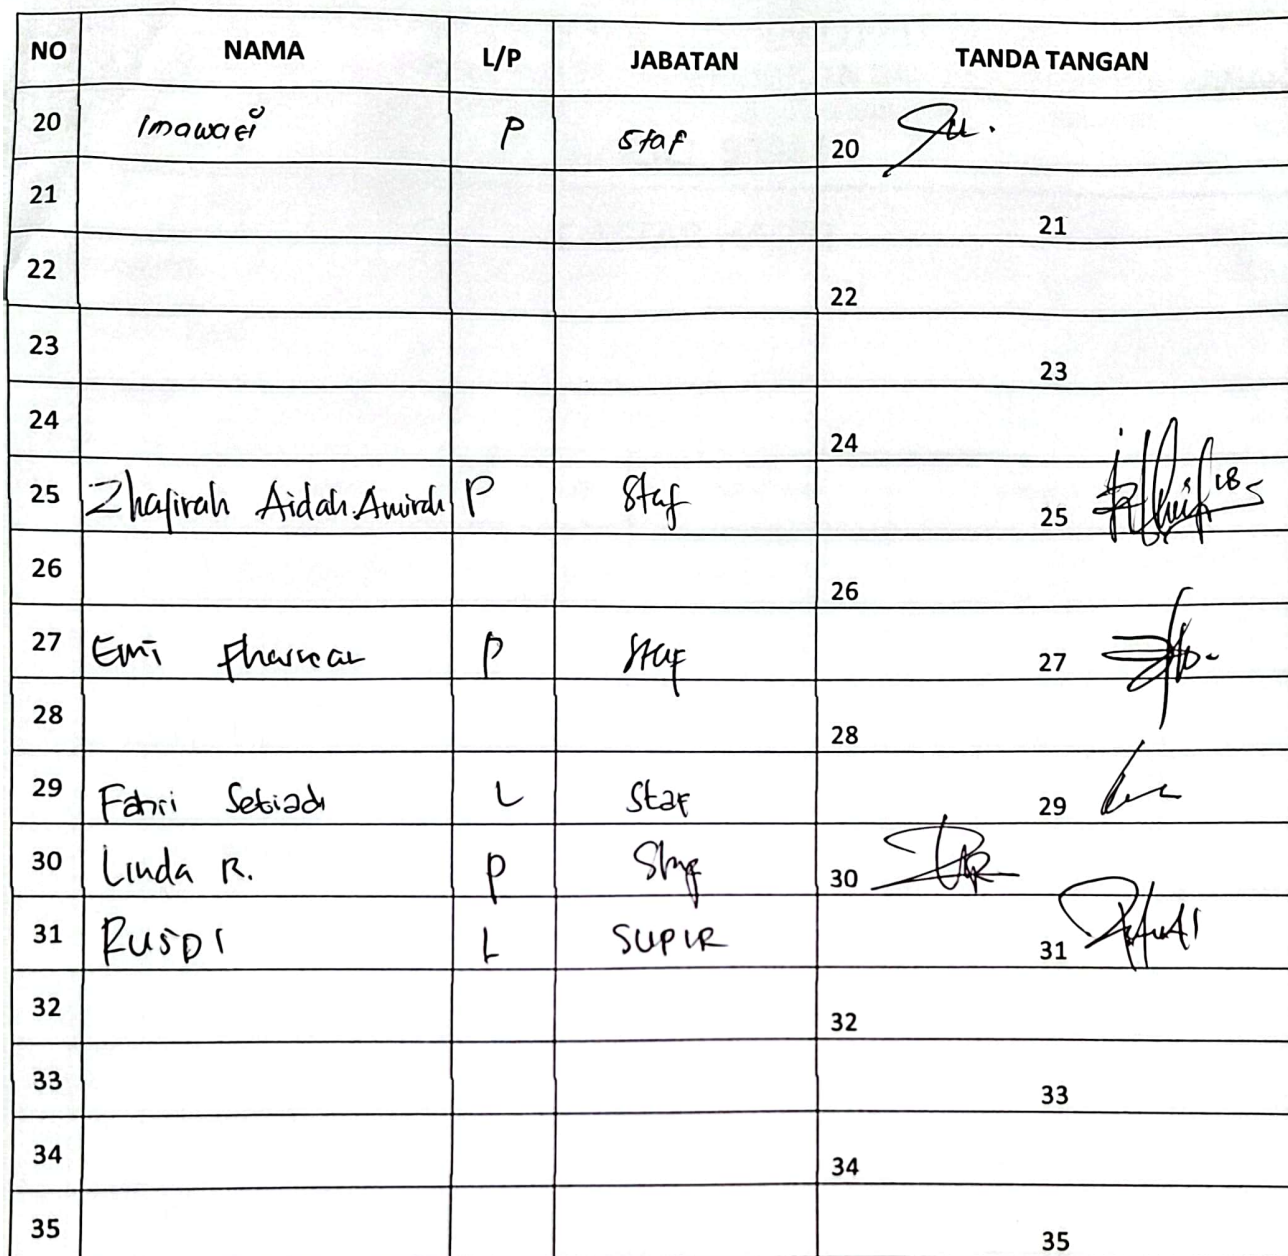 NO NAMA L/P JABATAN TANDA TANGAN
20 Imawati P Staf 20
21 21
22 22
23 23
24 24
25 Zhafirah Aidah Amirah P Staf 25
26 26
27 Emi P Staf 27
28 28
29 Fahri Setiadi L Staf 29
30 Linda R. P Staf 30
31 RUSDI L SUPIR 31
32 32
33 33
34 34
35 35